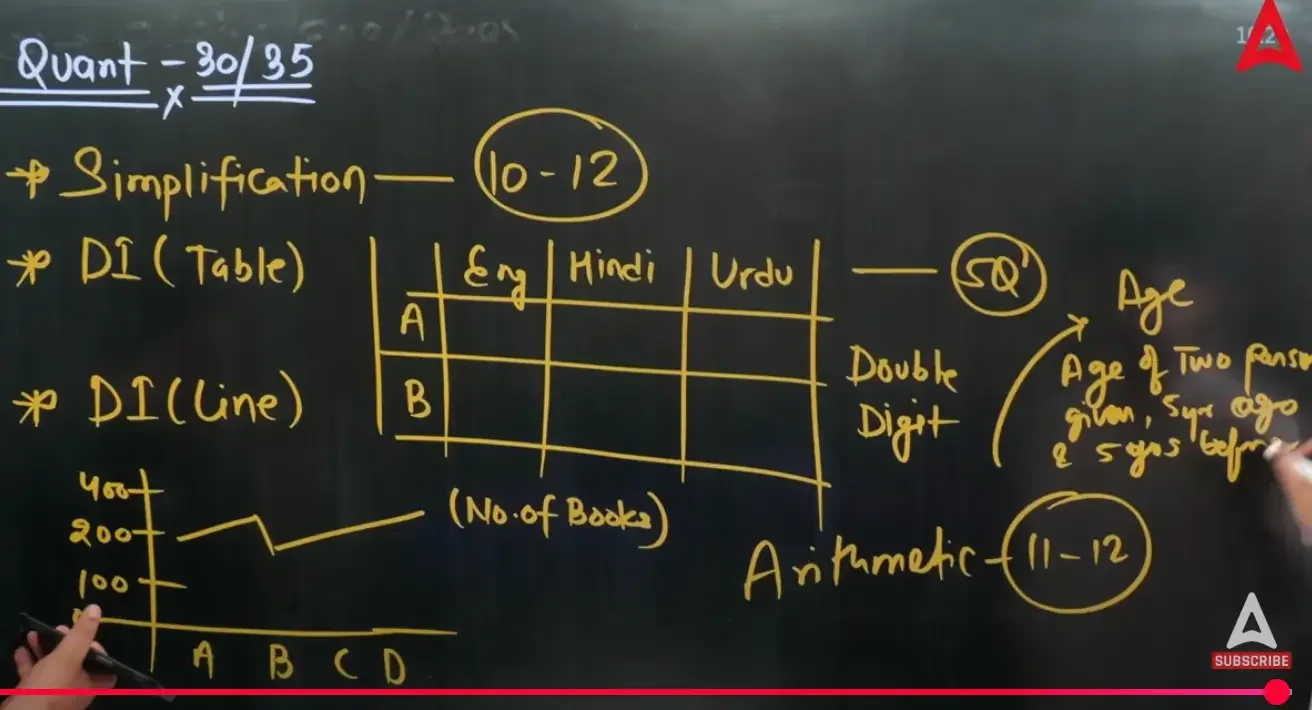 Quant - 30/35
x
* Simplification — 10-12
* DI (Table)
Eng Hindi Urdu — 5Q
A
B
Double
Digit
Age
Age of Two Person
given, 5yrs ago
& 5 yrs
* DI (Line)
400
200
100
A B C D
(No. of Books)
Arithmetic - 11-12
SUBSCRIBE